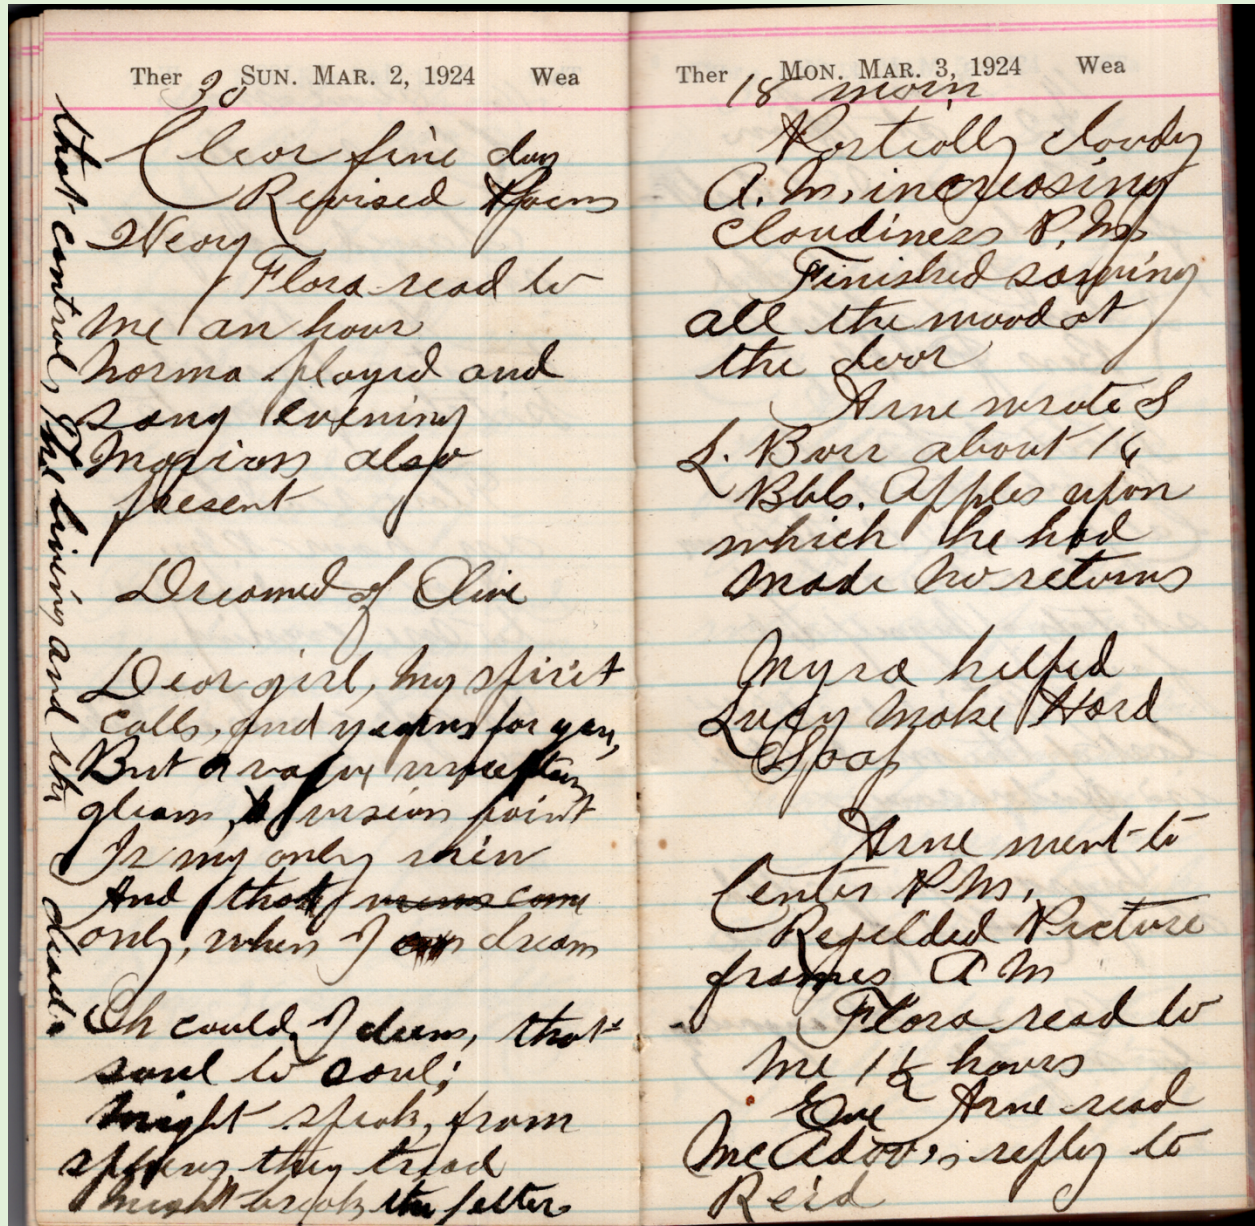 Ther 30 SUN. MAR. 2, 1924 Wea
Clear fine day
Revised Poems
Weary
Flora read to
me an hour
Norma played and
sang evening
Marion also
present
Dreamed of Olive
Dear girl, my spirit
calls, and yearns for you,
But a vague uncertain
gleam, a vision faint
Is my only view
And that comes
only, when I dream
Oh could I deem, that
soul to soul;
might speak, from
spheres they tread
might break the fetters
that controls The living and the dead.
Ther 18 morn MON. MAR. 3, 1924 Wea
Partially cloudy
A.M. increasing
cloudiness P.M.
Finished sawing
all the wood at
the door
Arne wrote S
L. Barr about 16
Bbls. Apples upon
which he had
made no returns
Myra helped
Lucy make Hard
Soap
Arne went to
Center P.M.
Regilded Picture
frames A M
Flora read to
me 1½ hours
Eve Arne read
McAdoo's reply to
Reid